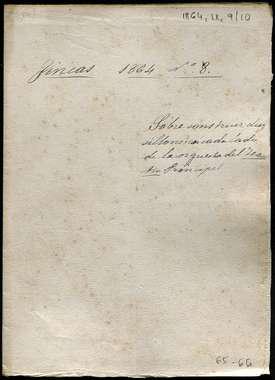 1864, IX, 9/10
Fincas 1864 N.º 8.
Sobre construir diez
sillones a cada lado
de la orquesta del Tea
tro Principal
65-66